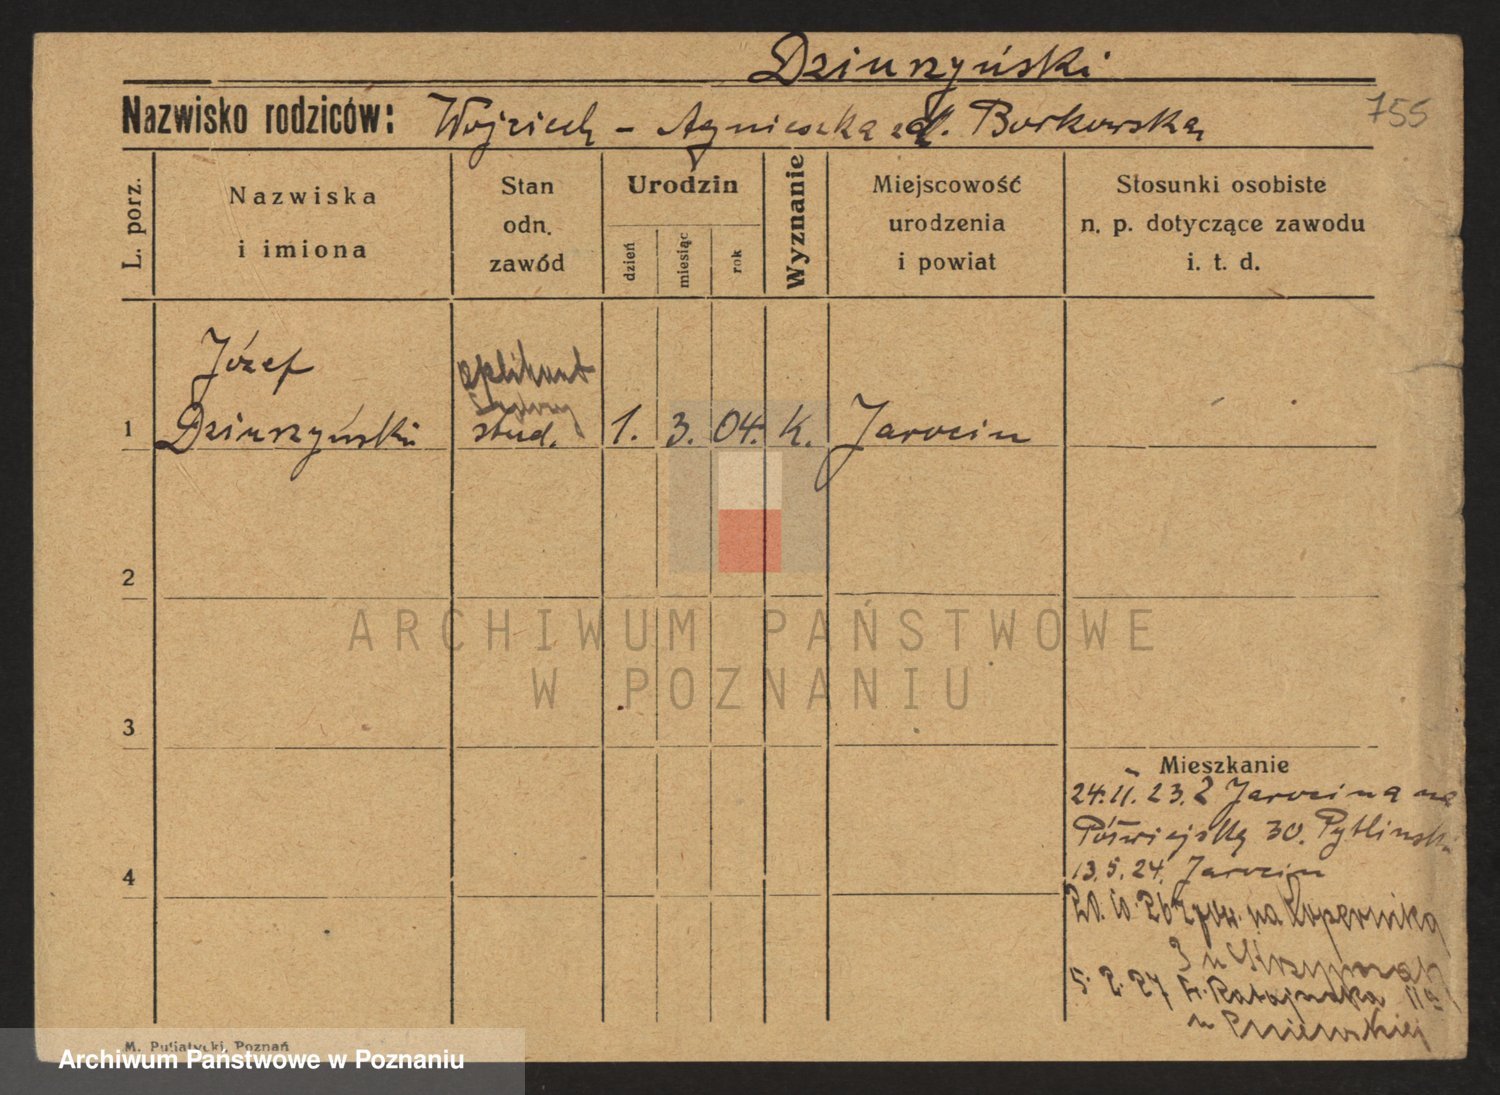 Dziurzyński
755
Nazwisko rodziców: Wojciech – Agnieszka zd. Borkowska
L. porz.
Nazwiska
i imiona
Stan
odn.
zawód
Urodzin
dzień
miesiąc
rok
Wyznanie
Miejscowość
urodzenia
i powiat
Stosunki osobiste
n. p. dotyczące zawodu
i. t. d.
Józef
aplikant
1 Dziurzyński stud. 1. 3. 04. k. Jarocin
2
3
4
Mieszkanie
24.II.23. z Jarocina na
Półwiejską 30. Pytlinski
13.5.24. Jarocin
na Kopernika
3 u
5.2.27 Fr. Ratajczaka 11a
u Pniewskiej
M. Putiatycki, Poznań
ARCHIWUM PAŃSTWOWE
W POZNANIU
Archiwum Państwowe w Poznaniu